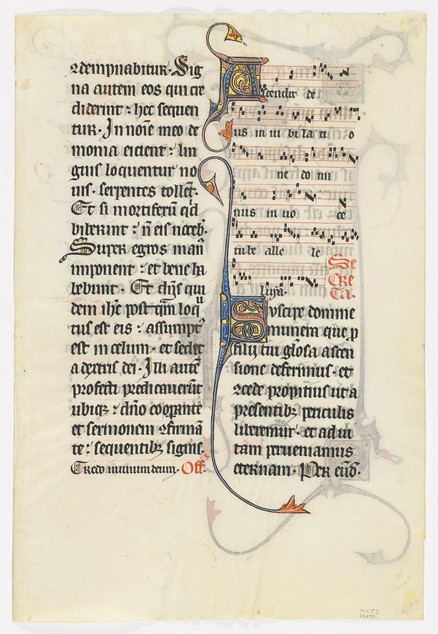 ꝯdempnabitur. Sig
na autem eos qui cre
diderint: hec sequen
tur. In noīe meo de
monia eicient: lin
guis loquentur no
uis. serpentes tollēt.
Et si mortiferū qd
biberint: n̄ eis noceb.
Super egros man
imponent: et bene ha
bebunt. Et dn̄s qui
dem ihc postqm̄ locu
tus est eis: assumpt
est in celum: et sedet
a dextris dei. Illi autē
profecti predicauerūt
ubiqꝫ: dn̄o coopante
et sermonem ꝯfirmā
te: sequentibꝫ signis.
Credo in unum deum. Off.
Ascendit de
us in iu bi la ti o
ne do mi
nus in uo ce
tube alle le
luya.
Se
cre
ta.
Suscipe domine
munera que p
filii tui gliosa ascen
sione deferimus. et
ꝯcede propitius ut a
presentibꝫ periculis
liberemur. et ad ui
tam perueniamus
eternam. Per eūd.